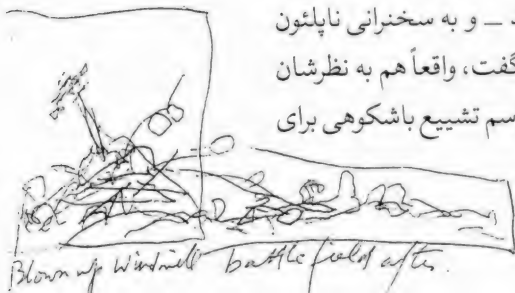 ـ و به سخنرانی ناپلئون
گفت، واقعاً هم به نظرشان
سم تشییع باشکوهی برای
Blown up Windmill battlefield after.